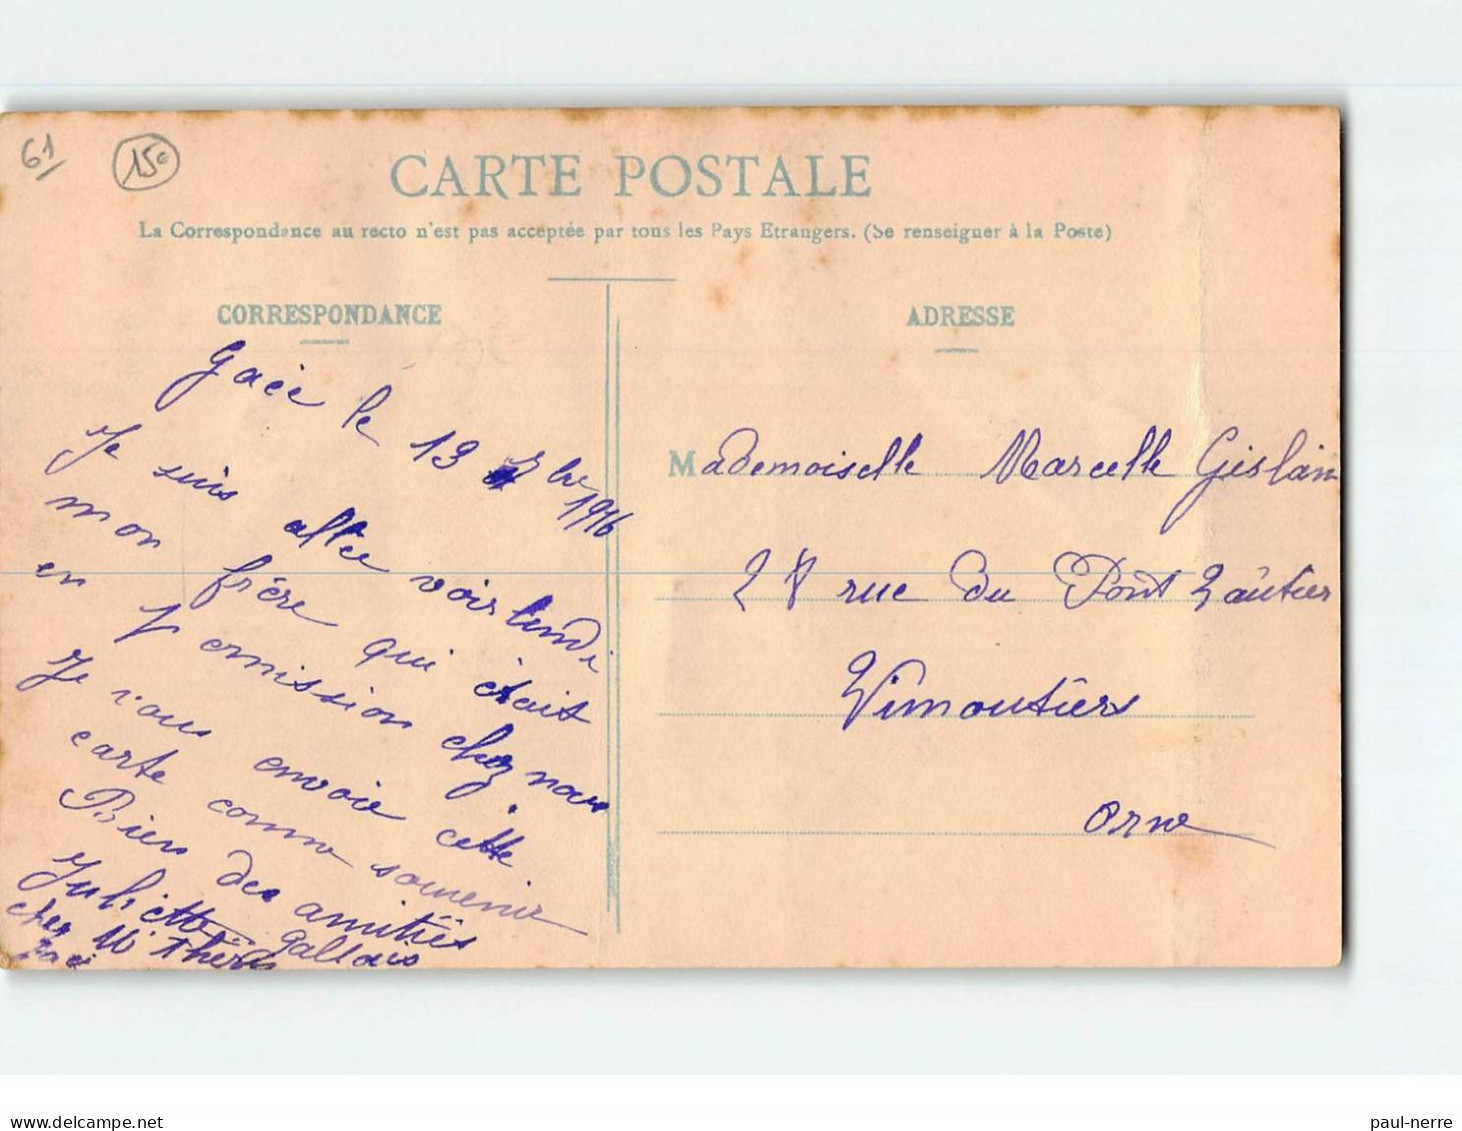 61
15c
CARTE POSTALE
La Correspondance au recto n'est pas acceptée par tous les Pays Etrangers. (Se renseigner à la Poste)
CORRESPONDANCE
Gacé le 13 7bre
1916
Je suis allée voir lundi
mon frère qui était
en permission chez nous
Je vous envoie cette
carte comme souvenir
Bien des amitiés
Juliette Gallais
chez M
ADRESSE
Mademoiselle Marcelle Gislain
28 rue du Pont Vautier
Vimoutiers
Orne
www.delcampe.net
paul-nerre